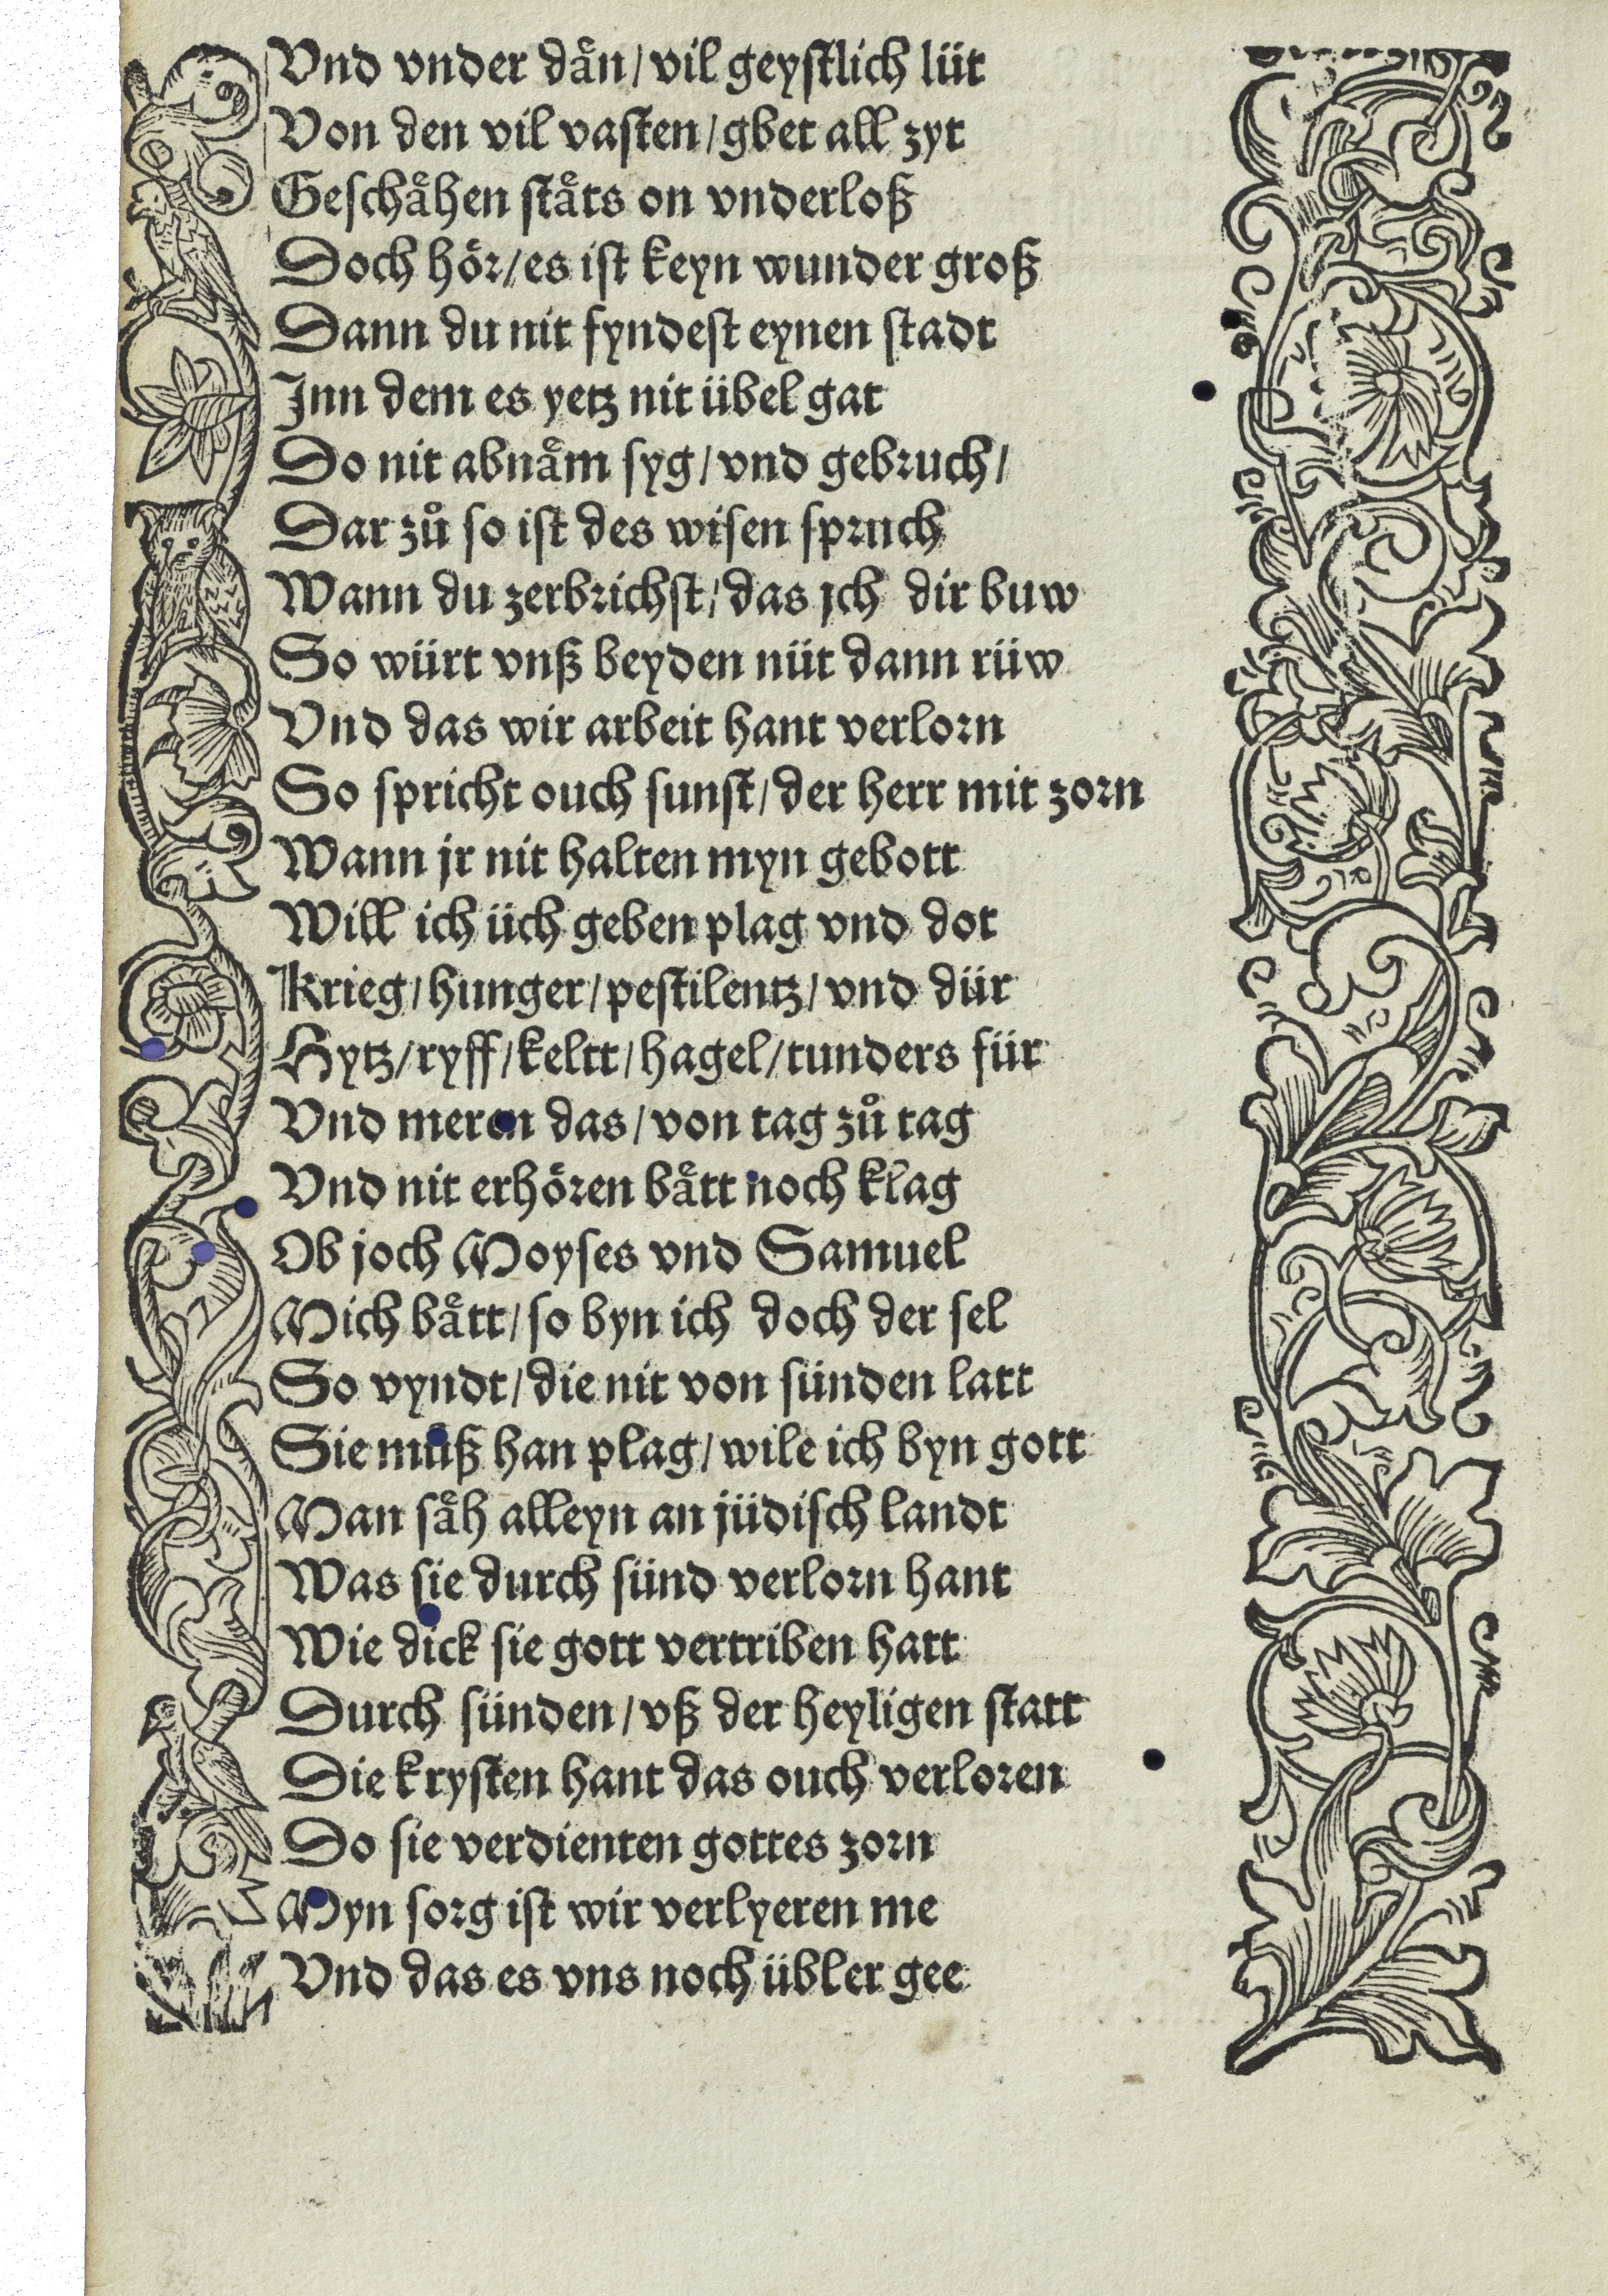 Vnd vnder däͤn / vil geystlich lüt
Von den vil vasten / gbet all zyt
Geschaͤhen staͤts on vnderloß
Doch hoͤr / es ist keyn wunder groß
Dann du nit fyndest eynen stadt
Inn dem es yetz nit übel gat
Do nit abnaͤm syg / vnd gebruch /
Dar zuͦ so ist des wisen spruch
Wann du zerbrichst / das jch dir buw
So würt vnß beyden nüt dann rüw
Vnd das wir arbeit hant verlorn
So spricht ouch sunst / der herr mit zorn
Wann jr nit halten myn gebott
Will ich üch geben plag vnd dot
Krieg / hunger / pestilentz / vnd dür
Hytz / ryff / keltt / hagel / tunders für
Vnd meren das / von tag zuͦ tag
Vnd nit erhoͤren baͤtt noch klag
Ob joch Moyses vnd Samuel
Mich baͤtt / so byn ich doch der sel
So vyndt / die nit von sünden latt
Sie muß han plag / wile ich byn gott
Man saͤh alleyn an jüdisch landt
Was sie durch sünd verlorn hant
Wie dick sie gott vertriben hatt
Durch sünden / vß der heyligen statt
Die krysten hant das ouch verloren
Do sie verdienten gottes zorn
Myn sorg ist wir verlyeren me
Vnd das es vns noch übler gee